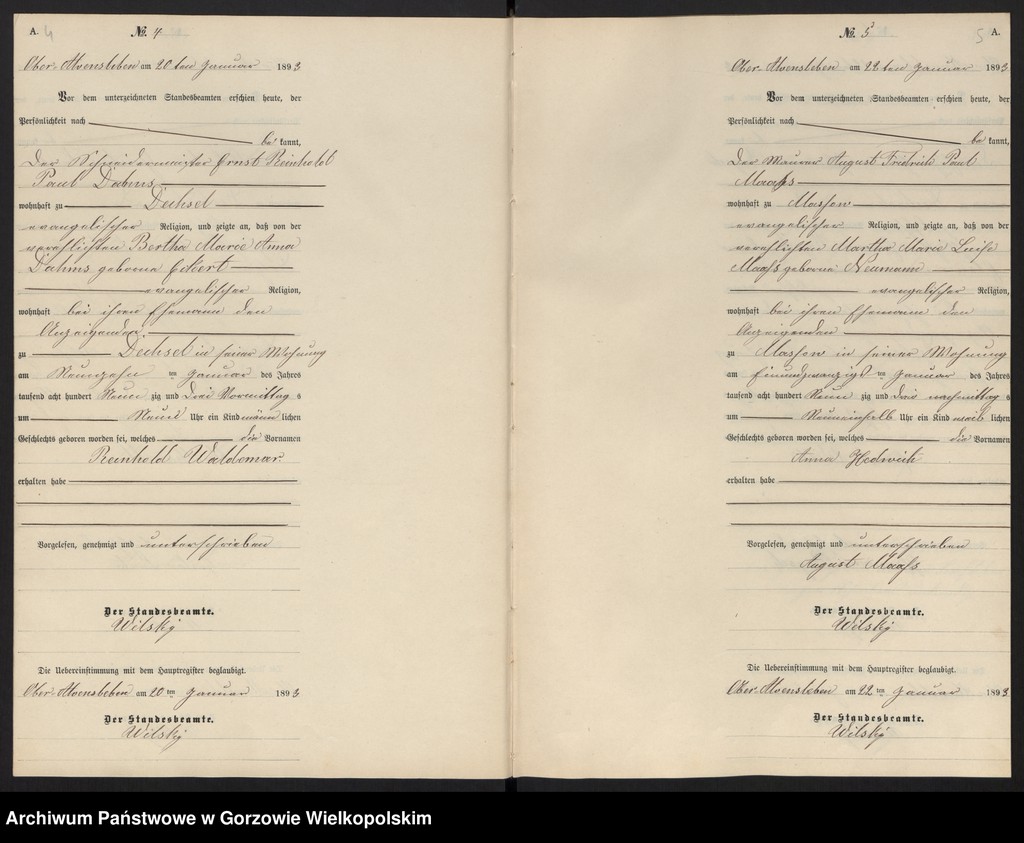 A. 4
No. 4
Ober-Alvensleben am 20 ten Januar 1893
Vor dem unterzeichneten Standesbeamten erschien heute, der
Persönlichkeit nach
be kannt,
Der Schneidermeister Ernst Reinhold
Paul Dahms
wohnhaft zu Dechsel
evangelischer Religion, und zeigte an, daß von der
verehlichten Bertha Marie Anna
Dahms geborne Eckert
evangelischer Religion,
wohnhaft bei ihren Ehemann den
Anzeigenden
zu Dechsel in seiner Wohnung
am Neunzehn ten Januar des Jahres
tausend acht hundert Neun zig und Drei Vormittag s
um Neun Uhr ein Kind männ lichen
Geschlechts geboren worden sei, welches die Vornamen
Reinhold Waldemar
erhalten habe
Vorgelesen, genehmigt und unterschrieben
Der Standesbeamte.
Wilsky
Die Uebereinstimmung mit dem Hauptregister beglaubigt.
Ober-Alvensleben am 20 ten Januar 1893
Der Standesbeamte.
Wilsky
No. 5
5 A.
Ober-Alvensleben am 22 ten Januar 1893
Vor dem unterzeichneten Standesbeamten erschien heute, der
Persönlichkeit nach
be kannt,
Der Maurer August Fridrich Paul
Maahs
wohnhaft zu Massow
evangelischer Religion, und zeigte an, daß von der
verehlichten Martha Marie Luise
Maahs geborne Neumann
evangelischer Religion,
wohnhaft bei ihren Ehemann den
Anzeigenden
zu Massow in seiner Wohnung
am Einundzwanzigst ten Januar des Jahres
tausend acht hundert Neun zig und drei nachmittag s
um Neuneinhalb Uhr ein Kind weib lichen
Geschlechts geboren worden sei, welches die Vornamen
Anna Hedwich
erhalten habe
Vorgelesen, genehmigt und unterschrieben
August Maahs
Der Standesbeamte.
Wilsky
Die Uebereinstimmung mit dem Hauptregister beglaubigt.
Ober-Alvensleben am 22 ten Januar 1893
Der Standesbeamte.
Wilsky
Archiwum Państwowe w Gorzowie Wielkopolskim